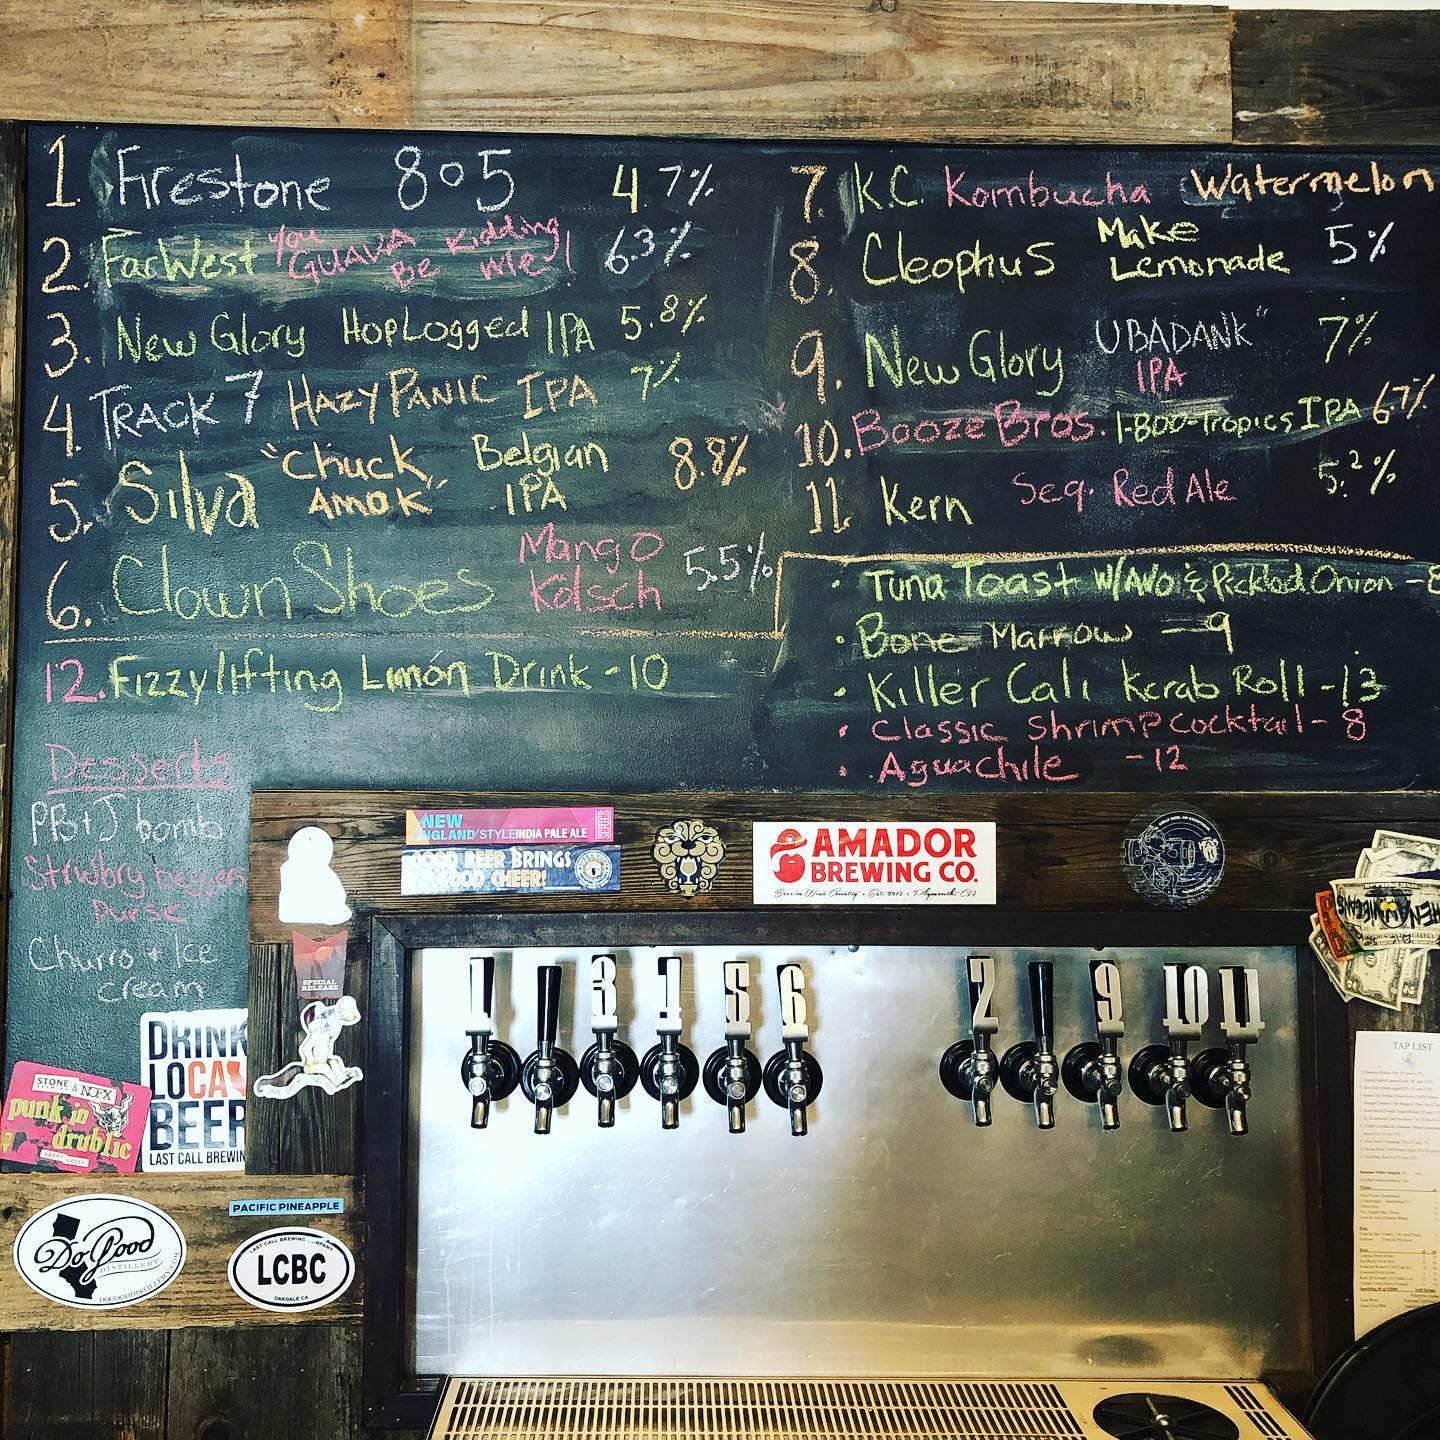 1. Firestone 805 4.7%
2. FacWest You GUAVA Be Kidding Me! 6.3%
3. New Glory HopLogged IPA 5.8%
4. TRACK 7 HAZY PANIC IPA 7%
5. Silva "Chuck Amok" Belgian IPA 8.8%
6. Clown Shoes Mango Kolsch 5.5%
12. Fizzy lifting Limón Drink - 10
7. K.C. Kombucha Watermelon
8. Cleophus Make Lemonade 5%
9. New Glory UBADANK" IPA 7%
10. Booze Bros. 1-800-Tropics IPA 6.7%
11. Kern Seq. Red Ale 5.2%
· Tuna Toast w/Avo & Pickled Onion - 8
· Bone Marrow - 9
· Killer Cali Kcrab Roll - 13
· Classic Shrimp Cocktail - 8
· Aguachile - 12
Desserts
PB+J bomb
Strwbry
purse
Churro + Ice
cream
NEW
ENGLAND/STYLE INDIA PALE ALE
SERIES
GOOD BEER BRINGS
GOOD CHEER!
AMADOR
BREWING CO.
Beer in Wine Country • Est. 2015 • Plymouth-CA
SPECIAL
RELEASE
1 3 1 5 6 2 9 10 11
DRINK
LOCA
BEER
LAST CALL BREWIN
STONE
BREWING & NOFX
punk in
drublic
HOPPY LAGER
Do Good
DISTILLERY
DOGOODDISTILLERY.COM
PACIFIC PINEAPPLE
LAST CALL BREWING COMPANY
LCBC
OAKDALE CA
TAP LIST